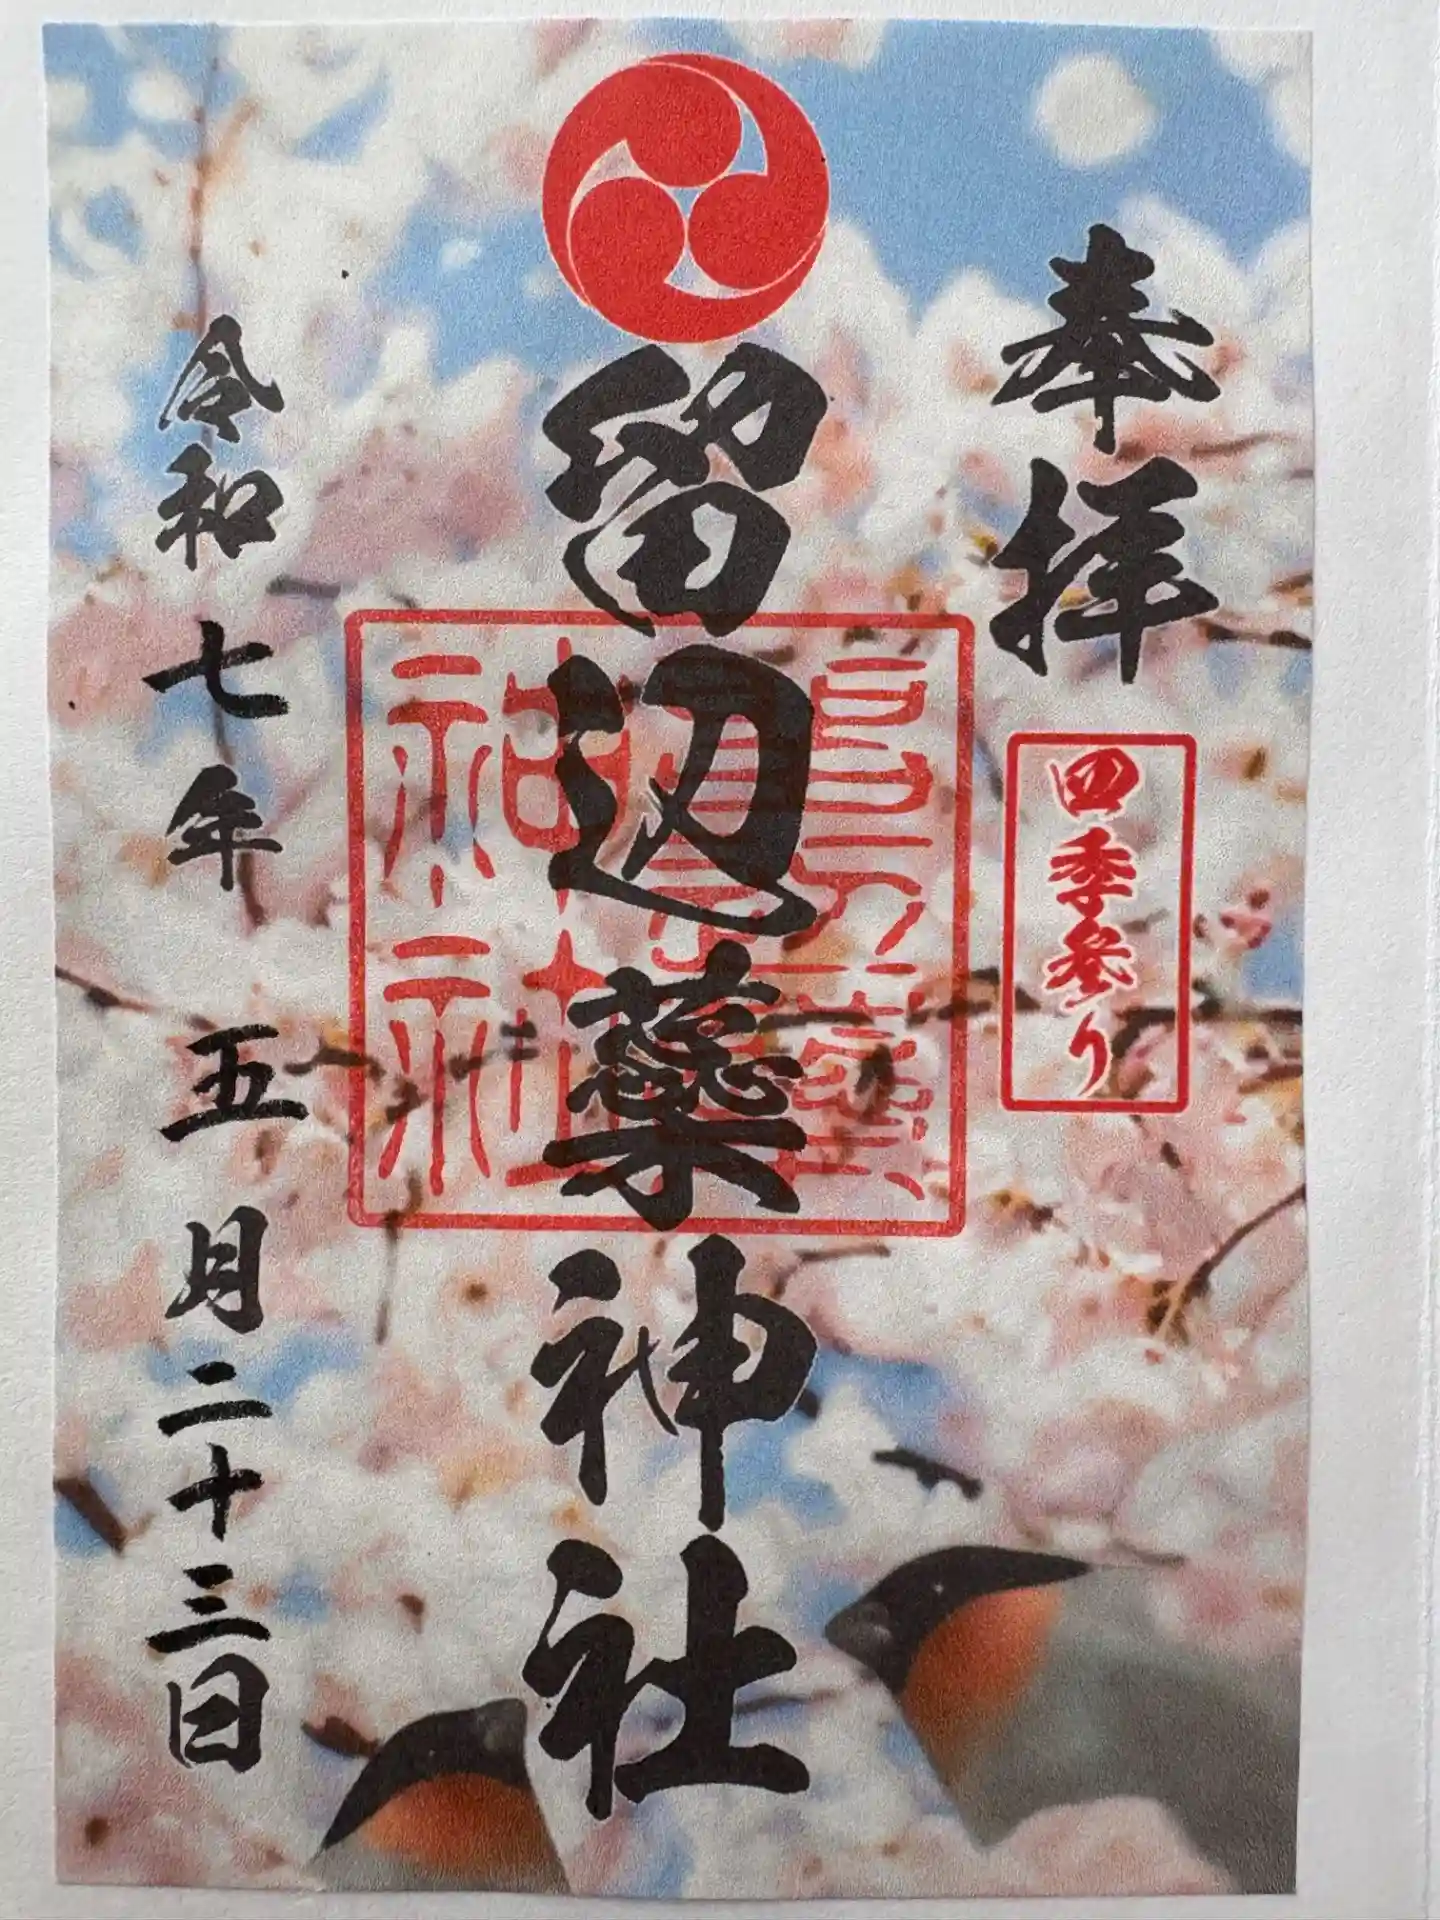 奉拝
四季参り
留辺蘂神社
令和七年五月二十三日